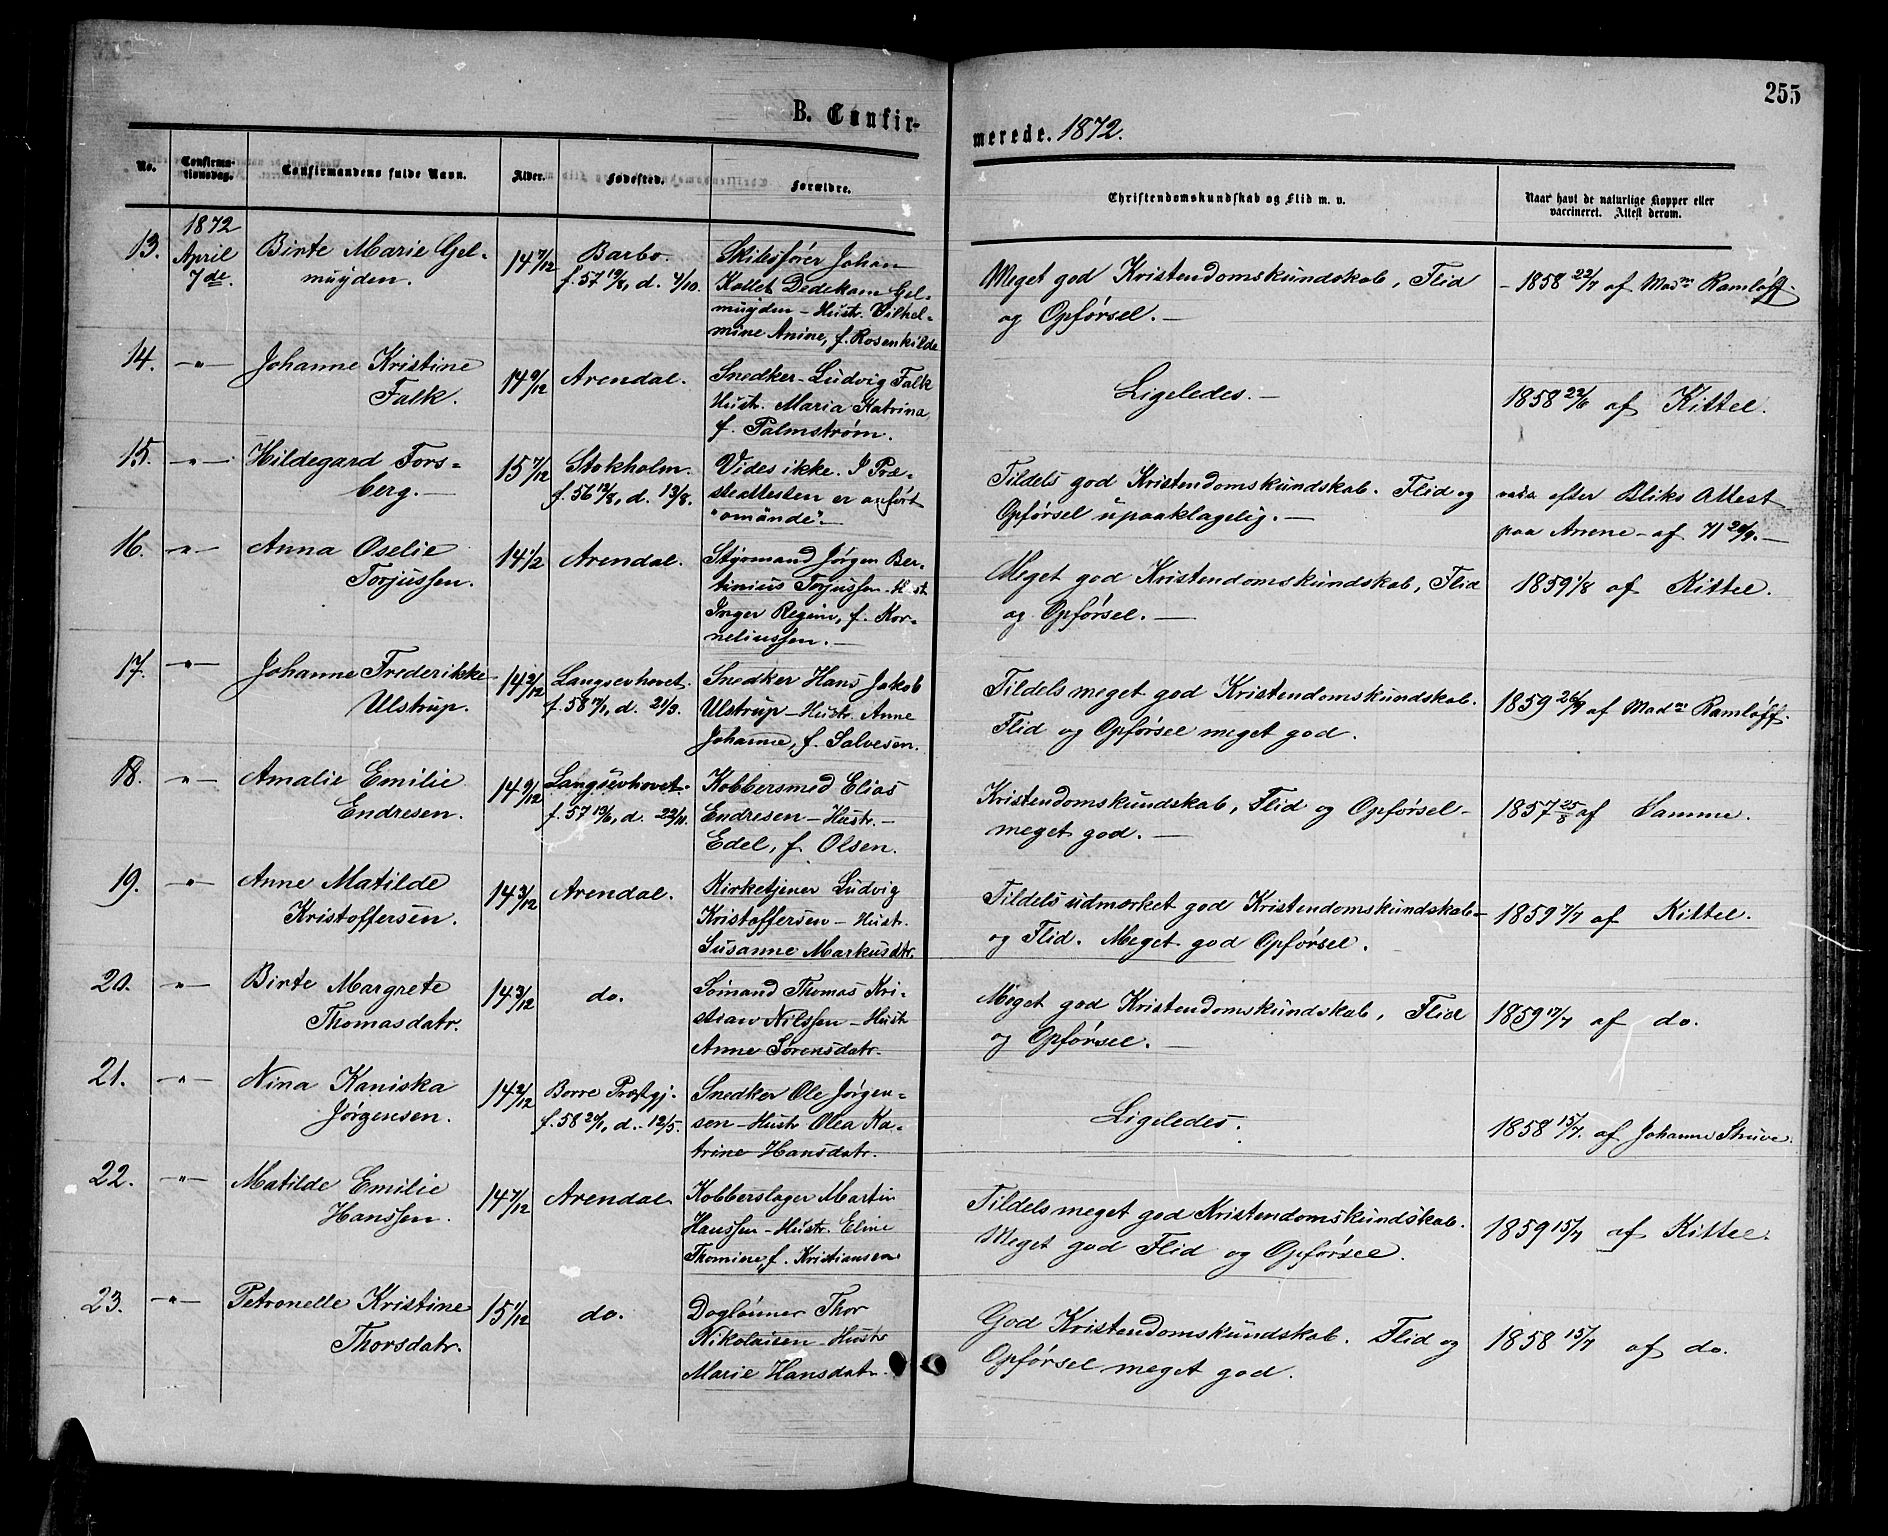 255
B. Confir-
merede. 1872.
No.
Confirma-
tionsdag.
Confirmandens fulde Navn.
Alder.
Fødested.
Forældre.
Christendomskundskab og Flid m. v.
Naar havt de naturlige Kopper eller
vaccineret. Attest derom.
1872
13. April 7de. Birte Marie Gel-
muyden.
14 7/12
Barbo.
f. 57 19/8, d. 4/10.
Skibsfører Johan
Kallet Dedekam Gel-
muyden - Hustr. Vilhel-
mine Anine, f. Rosenkilde
Meget god Kristendomskundskab, Flid
og Opførsel. -
- 1858 22/7 af Madm Ramløff.
14. -"- Johanne Kristine
Falk.
14 9/12
Arendal.
Snedker Ludvig Falk
Hustr. Maria Katrina,
f. Palmstrøm.
Ligeledes. -
1858 22/6 af Kittel.
15. -"- Hildegard Fors-
berg. -
15 7/12
Stokholm.
f. 56 12/8, d. 13/8.
Vides ikke. I Præ-
steattesten er anført
"omände". -
Tildels god Kristendomskundskab. Flid og
Opførsel upaaklagelig. -
efter Bliks Attest
paa Arrene - af 71 20/9. -
16. -"- Anna Oselie
Torjussen.
14 1/2
Arendal.
Styrmand Jørgen Ber-
tinius Torjussen - Hust
Inger Regine, f. Kor-
neliussen. -
Meget god Kristendomskundskab, Flid
og Opførsel. -
1859 1/8 af Kittel.
17. -"- Johanne Frederikke
Ulstrup.
14 2/12
Langsevhovet.
f. 58 17/1, d. 21/3.
Snedker Hans Jakob
Ulstrup - Hustr. Anne
Johanne, f. Salvesen.
Tildels meget god Kristendomskundskab.
Flid og Opførsel meget god.
1859 26/7 af Madm Ramløff.
18. -"- Amalie Emilie
Endresen.
14 9/12
Langsevhovet.
f. 57 12/6, d. 22/11.
Kobbersmed Elias
Endresen - Hustr. -
Edel, f. Olsen.
Kristendomskundskab, Flid og Opførsel -
meget god. -
1857 25/8 af Samme.
19. -"- Anne Matilde
Kristoffersen.
14 3/12
Arendal.
Kirketjener Ludvig
Kristoffersen - Hustr.
Susanne Markusdtr.
Tildels udmærket god Kristendomskundskab -
og Flid. Meget god Opførsel.
1859 7/7 af Kittel.
20. -"- Birte Margrete
Thomasdatr.
14 3/12
do.
Sømand Thomas Kri-
stian Nilssen - Hustr
Anne Sørensdatr.
Meget god Kristendomskundskab, Flid
og Opførsel. -
1859 17/7 af do.
21. -"- Nina Kaniska
Jørgensen.
14 2/12
Borre Præstgj.
f. 58 20/1, d. 12/5.
Snedker Ole Jørgen-
sen - Hustr Olea Ka-
trine Hansdatr.
Ligeledes.
1858 15/7. af Johanne Struve.
22. -"- Matilde Emilie
Hanssen.
14 7/12
Arendal.
Kobberslager Martin
Hanssen - Hustr. Eline
Thomine, f. Kristiansen
Tildels meget god Kristendomskundskab.
Meget god Flid og Opførsel.
1859 15/7 af Kittel.
23. -"- Petronelle Kristine
Thorsdatr.
15 1/12
do.
Daglønner Thor
Nikolaisen - Hustr
Marie Hansdatr.
God Kristendomskundskab. Flid og
Opførsel meget god.
1858 15/7 af do.